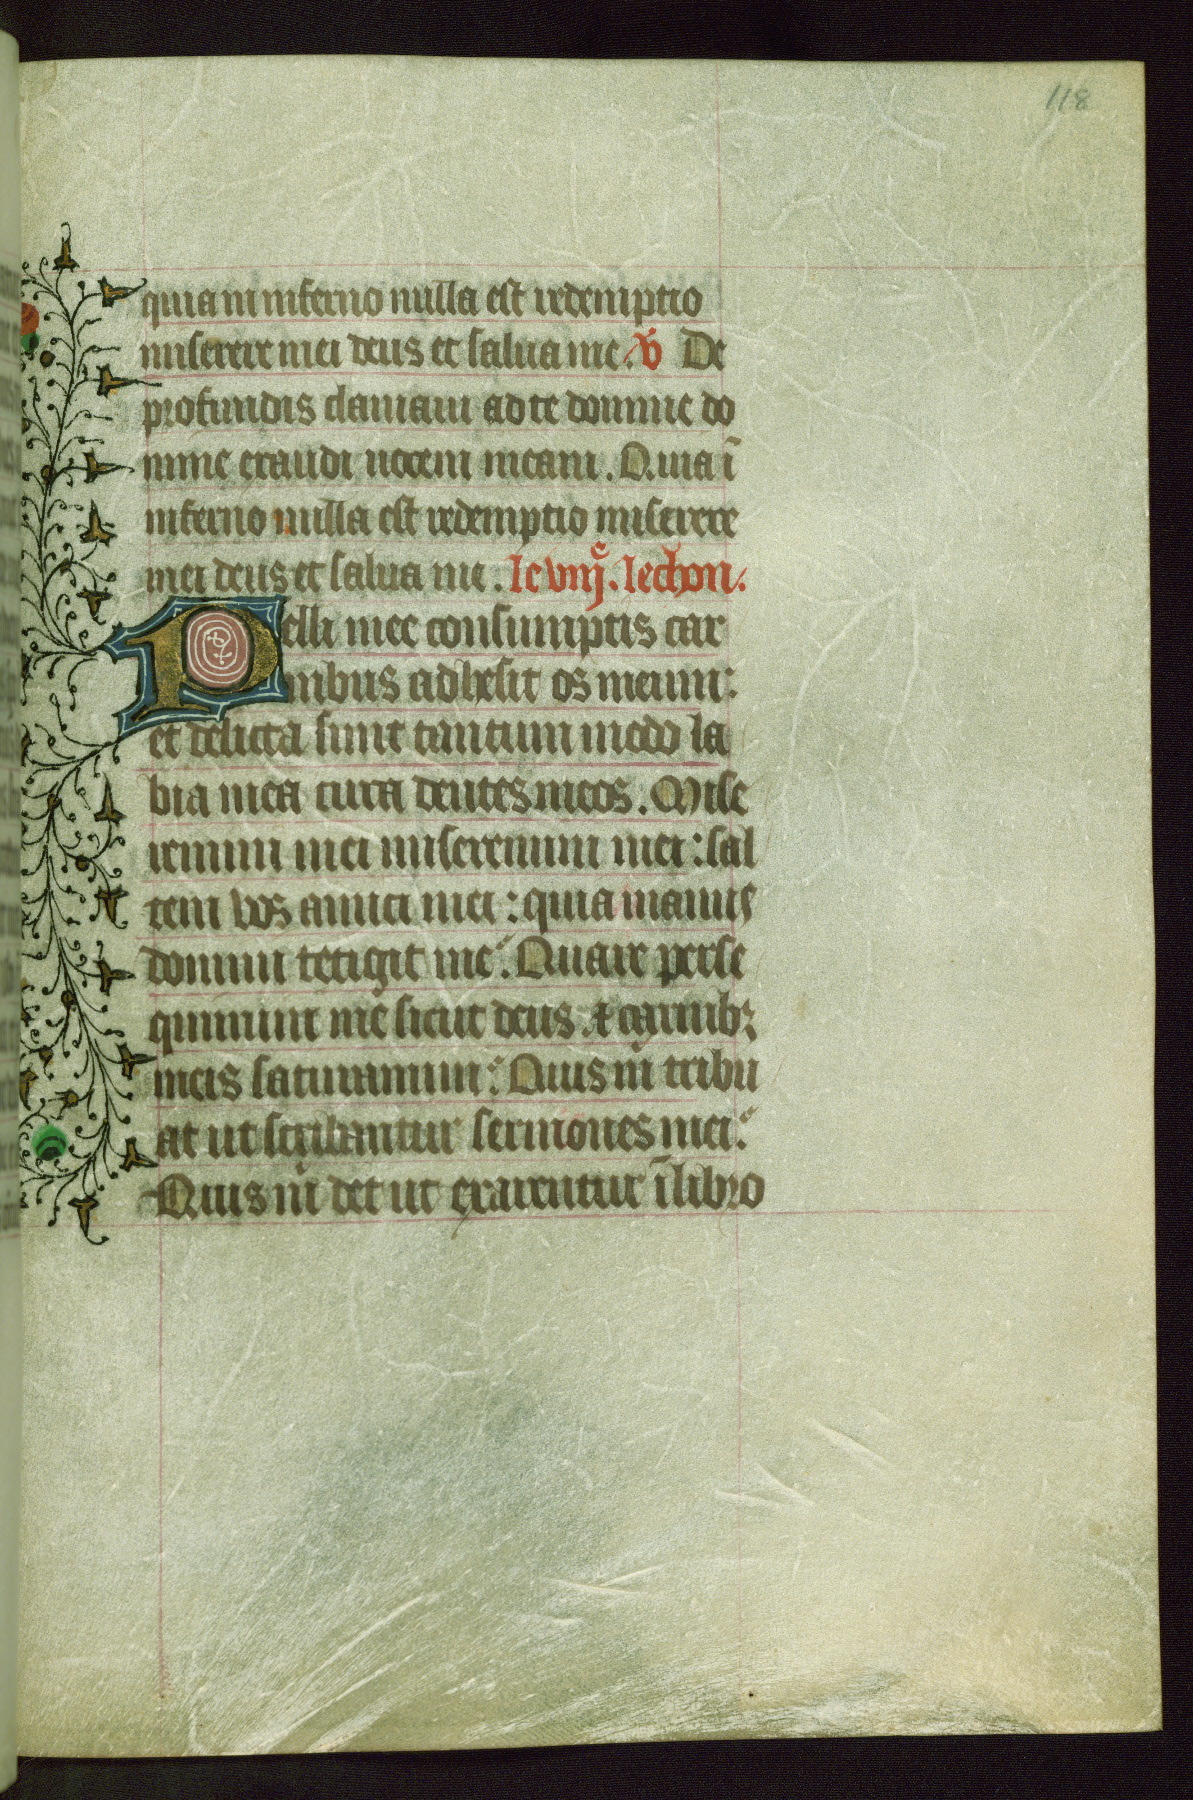 118
quia in inferno nulla est redemptio
miserere mei deus et salua me. V̄ De
profundis clamaui ad te domine do
mine exaudi uocem meam. Quia ī
inferno nulla est redemptio miserere
mei deus et salua me.
Pelli mee consumptis car
nibus adhesit os meum:
et delicta sunt tantum modo la
bia mea circa dentes meos. Mise
remini mei miseremini mei: sal
tem vos amici mei: quia manus
domini tetigit me: Quare perse
quimini me sicut deus et carnibꝫ
meis saturamini: Quis m̄ tribu
at ut scribantur sermones mei:
Quis m̄ det ut exarentur ī libro